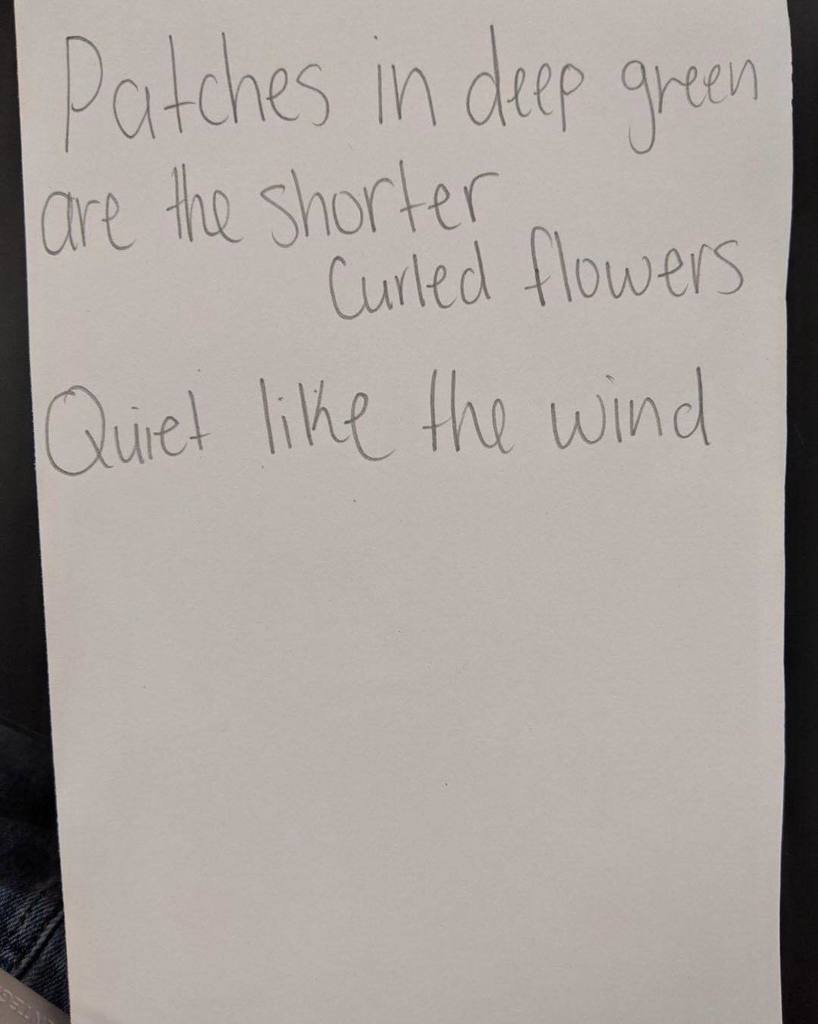 Patches in deep green
are the shorter
curled flowers
Quiet like the wind